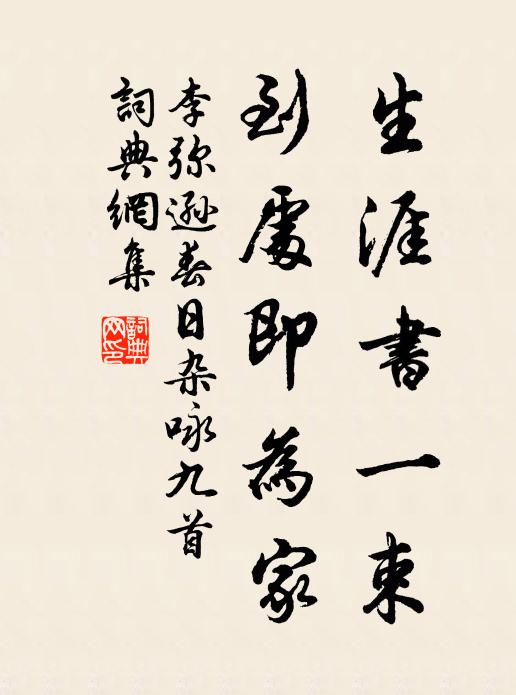 生涯書一束
到處即為家
李弥遜春日杂咏九首
詞典網集
詞典
网印